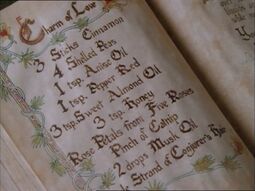 Charm of Love
3 Sticks Cinnamon
4 Shelled Peas
1 tsp. Anise Oil
1 tsp. Pepper Red
3 tsp. Sweet Almond Oil
3 tsp. Honey
Rose Petals from Five Roses
Pinch of Catnip
2 drops Musk Oil
Strand of Conjurer's Hair